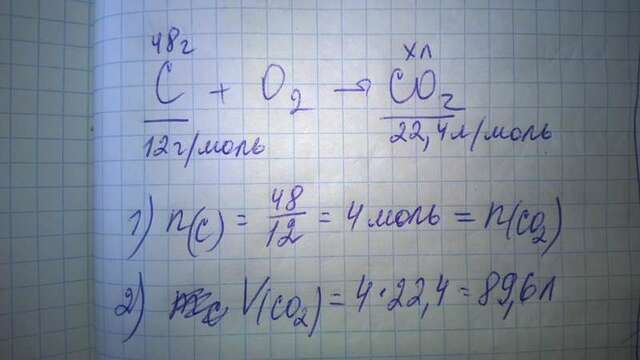 48г хл
C + O₂ → CO₂
12г/моль 22,4л/моль
1) n(C) = 48/12 = 4 моль = n(CO₂)
2) V(CO₂) = 4·22,4 = 89,6л